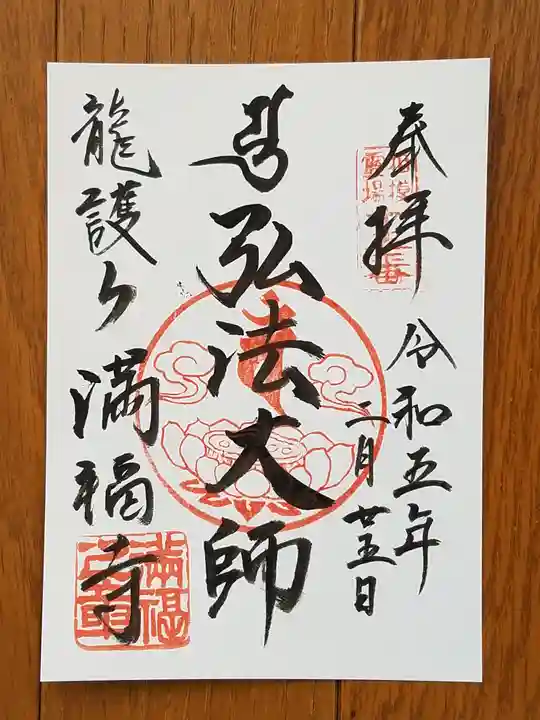 奉拝
令和五年
二月廿五日
弘法大師
龍護山
満福寺